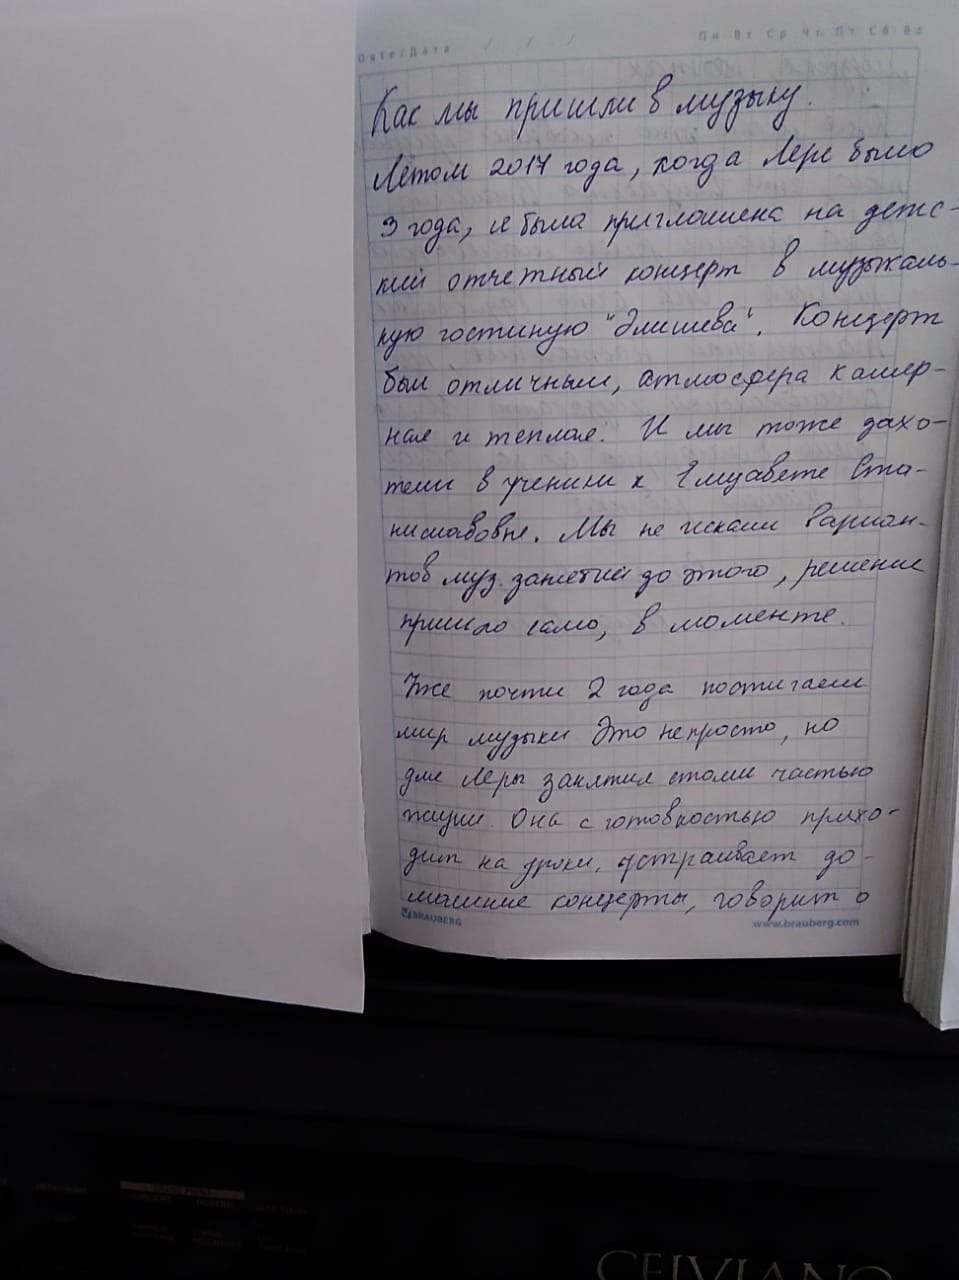 Date/Дата / / /
Пн Вт Ср Чт Пт Сб Вс
Как мы пришли в музыку.
Летом 2017 года, когда Лере было
3 года, я была приглашена на детс-
кий отчетный концерт в музыкаль-
ную гостиную "Элишева". Концерт
был отличным, атмосфера камер-
ная и теплая. И мы тоже захо-
тели в ученики к Елизавете Ста-
ниславовне. Мы не искали вариан-
тов муз. занятий до этого, решение
пришло само, в моменте.
Уже почти 2 года постигаем
мир музыки Это непросто, но
для Леры занятия стали частью
жизни. Она с готовностью прихо-
дит на уроки, устраивает до-
машние концерты, говорит о
BRAUBERG
www.brauberg.com
CELVIANO